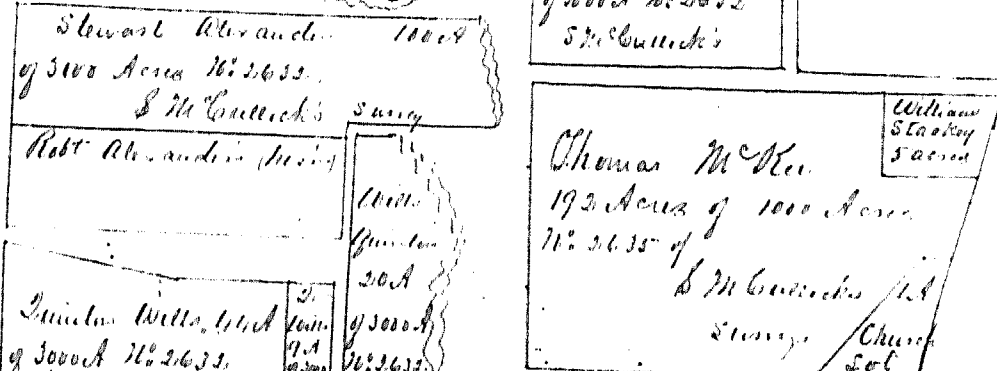 Stewart Alexander 100 A
of 3100 Acres No. 2632
S McCullick's Survey
Robt Alexander
Wills
Quinton
20 A
of 3000 A
No. 2632
Quinton Wills
of 3000 A No. 2632
Wills
of 3000 A No. 2632
S McCullick's
William
Stackey
5 acres
Thomas McKee
192 Acres of 1000 Acres
No. 2635 of
S McCullicks
Survey
1 A
Church
Lot